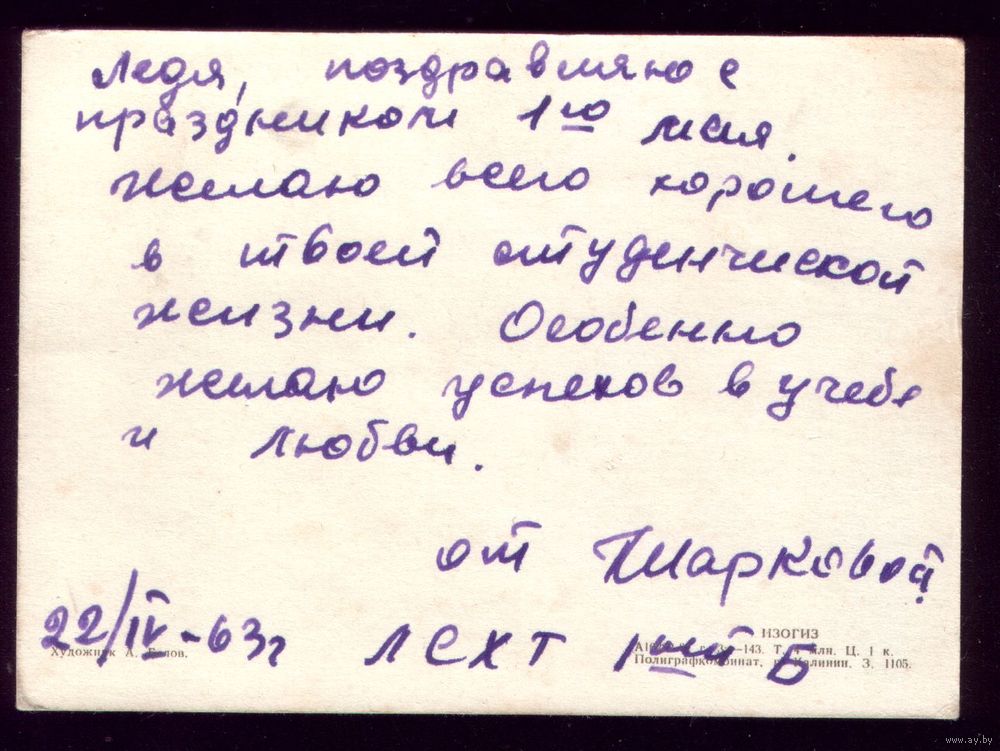 Ледя, поздравляю с
праздником 1го мая.
Желаю всего хорошего
в твоей студенческой
жизни. Особенно
желаю успехов в учебе
и любви.
от Шарковой
22/IV-63г ЛСХТ 1ый Б
ИЗОГИЗ
Художник А. –143. Т. 4 млн. Ц. 1 к.
Полиграфкомбинат, г. Калинин. З. 1105.
www.ay.by